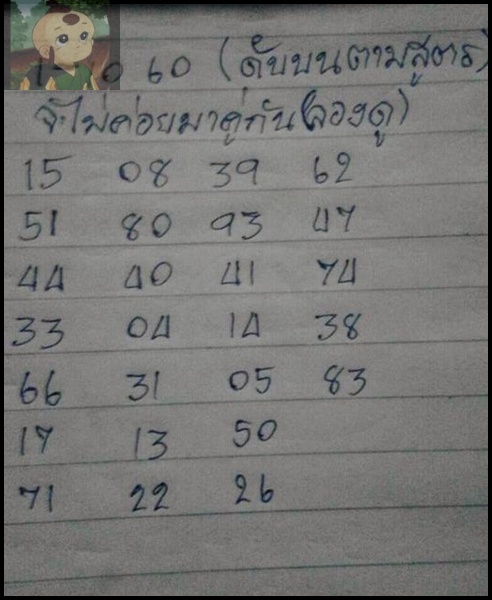 60 (ดับบนตามสูตร)
จะไม่ค่อยมาคู่กัน (ลองดู)
15 08 39 62
51 80 93 47
44 40 41 74
33 04 14 38
66 31 05 83
17 13 50
71 22 26